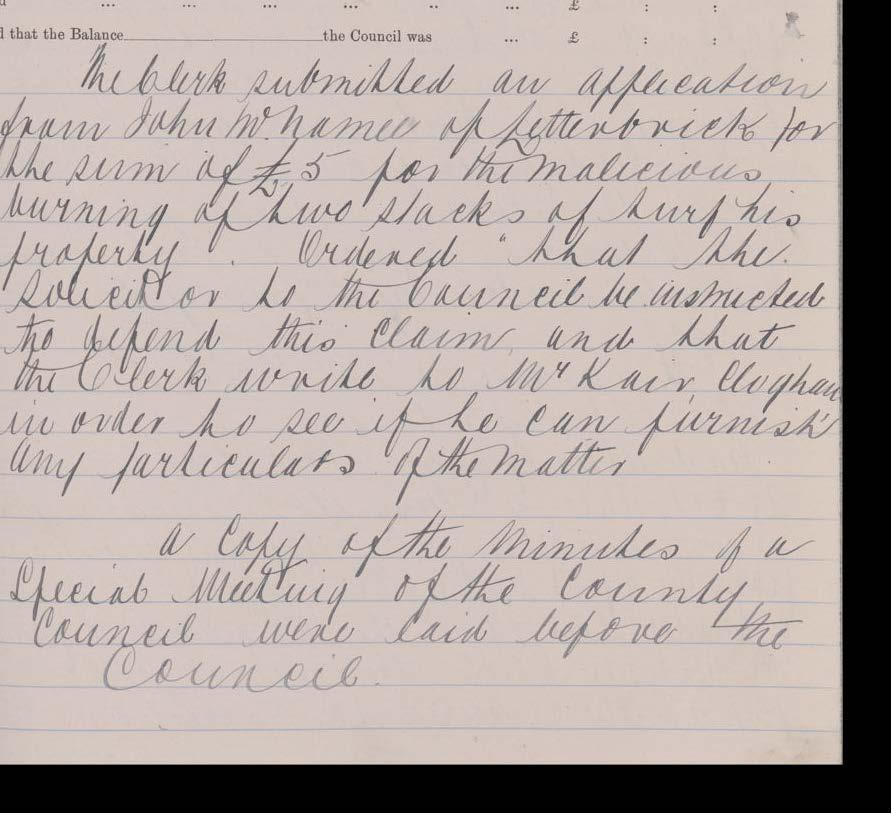 ... ... ... ... .. ... £ : :
d that the Balance the Council was ... £ : :
The Clerk submitted an application
from John McNamee of Letterbrick for
the sum of £5 for the malicious
burning of two stacks of turf his
property. Ordered "that the
Solicitor to the Council be instructed
to defend this claim, and that
the Clerk write to Mr Kair, Cloghan
in order to see if he can furnish
any particulars of the matter
A Copy of the Minutes of a
Special Meeting of the County
Council were laid before the
Council.